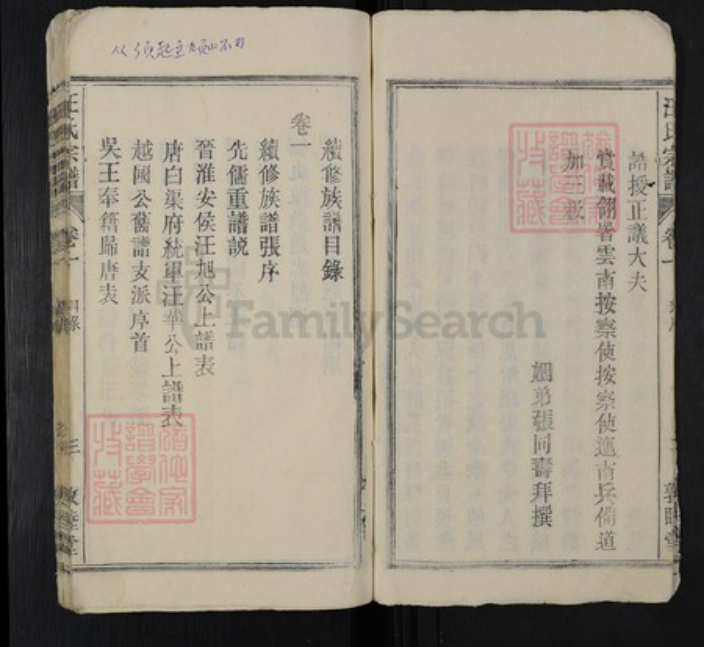 誥授正議大夫
賞戴翎署雲南按察使按察使迤南兵備道
加三級
姻弟張同壽拜撰
汪氏宗譜
卷一
敦睦堂
續修族譜目錄
卷一
續修族譜張序
先儒重譜説
晉淮安侯汪旭公上譜表
唐白渠府統軍汪華公上譜表
越國公舊譜支派序首
吳王奉籍歸唐表
汪氏宗譜
卷一
目錄
敦睦堂
譜學會
特藏
FamilySearch